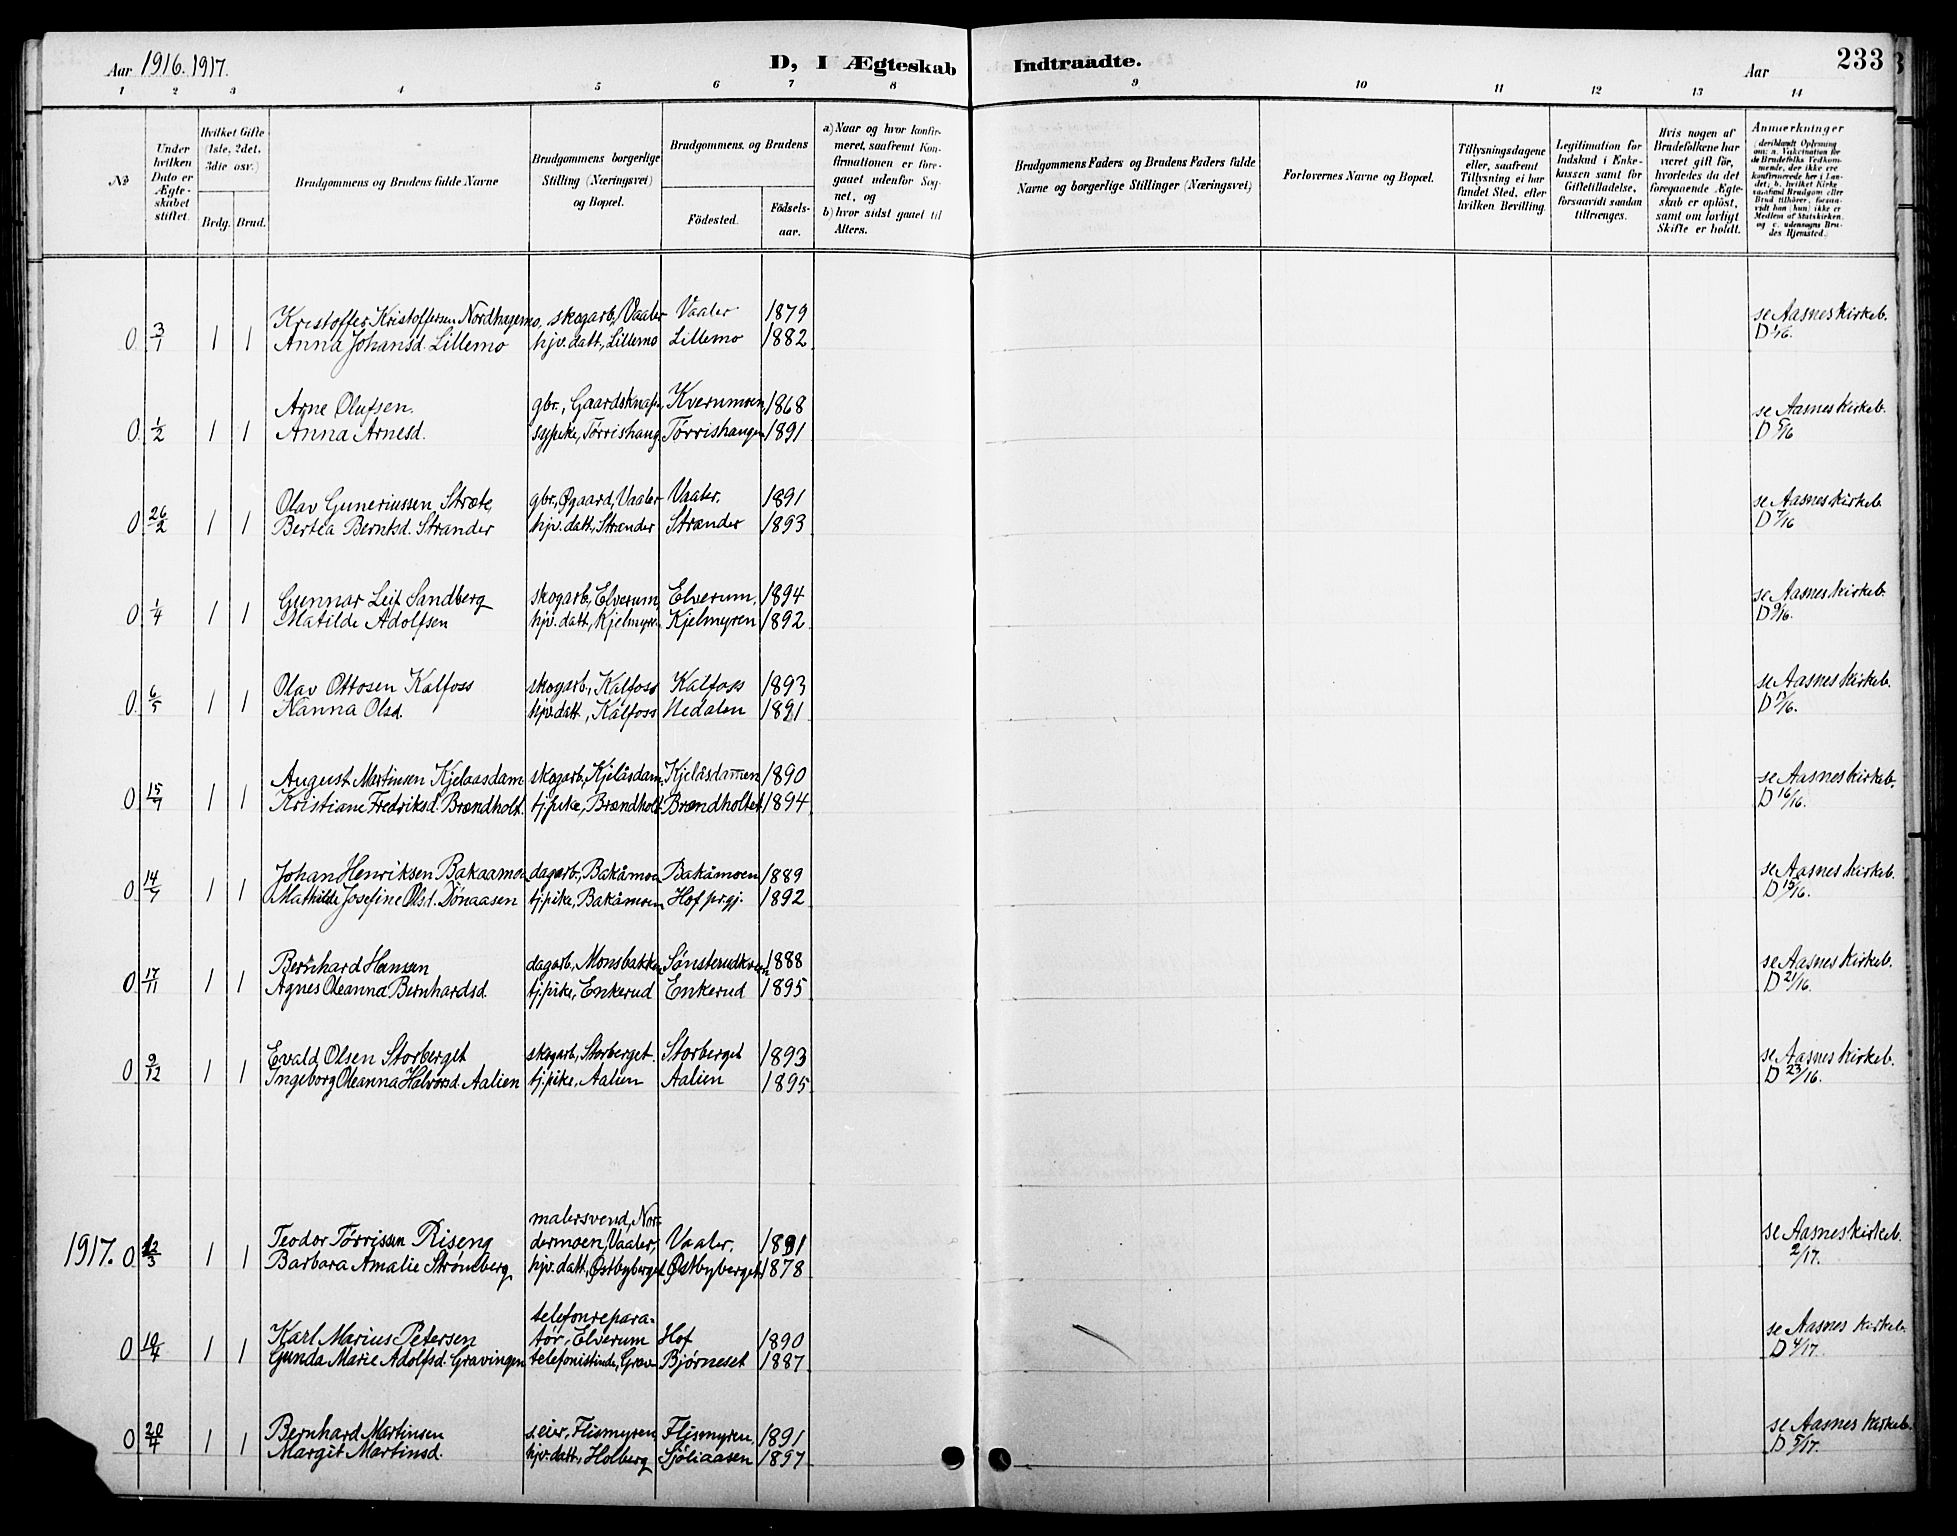 Aar 1916. 1917.
D, I Ægteskab Indtraadte.
Aar
233
1 2 3 4 5 6 7 8 9 10 11 12 13 14
No
Under hvilken Dato er Ægteskabet stiftet.
Hvilket Gifte (1ste, 2det, 3die osv.)
Brdg. Brud.
Brudgommens og Brudens fulde Navne
Brudgommens borgerlige Stilling (Næringsvei) og Bopæl.
Brudgommens og Brudens
Födested.
Födselsaar.
a) Naar og hvor konfirmeret, saafremt Konfirmationen er foregaaet udenfor Sognet, og
b) hvor sidst gaaet til Alters.
Brudgommens Faders og Brudens Faders fulde Navne og borgerlige Stillinger (Næringsvei)
Forlovernes Navne og Bopæl.
Tillysningsdagene eller, saafremt Tillysning ei har fundet Sted, efter hvilken Bevilling.
Legitimation for Indskud i Enkekassen samt for Giftetilladelse, forsaavidt saadan tiltrænges.
Hvis nogen af Brudefolkene har været gift för, hvorledes da det foregaaende Ægteskab er oplöst, samt om lovligt Skifte er holdt.
Anmerkninger (deriblandt Oplysning om: a. Vakcination for de Brudefolks Vedkommende, der ikke ere konfirmerede her i Landet; b. hvilket Kirkesamfund Brudgom eller Brud tilhörer, forsaavidt han (hun) ikke er Medlem af Statskirken, og c. udensogns Brudes Hjemsted.)
0 3/1 1 1 Kristoffer Kristoffersen Nordhagemo, skogarb., Vaaler Vaaler 1879 se Aasnes kirkeb.
Anna Johansd. Lillemo hjv. datt., Lillemo Lillemo 1882 D 1/16.
0 1/2 1 1 Arne Olufsen. gbr., Gaardsknap. Kvernmoen 1868 se Aasnes kirkeb.
Anna Arnesd. sypike, Tørrishaug. Tørrishaugen 1891 D 5/16
0 26/2 1 1 Olav Guneriussen Stræte, gbr., Øgaard, Vaaler Vaaler. 1891 se Aasnes kirkeb.
Bertea Berntsd. Strander hjv. datt., Strander Strander 1893 D 7/16
0 1/4 1 1 Gunnar Leif Sandberg skogarb., Elverum, Elverum. 1894 se Aasnes kirkeb.
Matilde Adolfsen hjv. datt., Kjelmyren Kjelmyren 1892 D 9/16.
0 6/5 1 1 Olav Ottosen Kalfoss skogarb., Kalfoss Kalfoss 1893 se Aasnes kirkeb.
Nanna Olsd. hjv. datt., Kalfoss Nedalen 1891 D 11/16.
0 15/7 1 1 August Martinsen Kjelaasdam skogarb., Kjelåsdam. Kjelåsdammen 1890 se Aasnes kirkeb.
Kristiane Fredriksd. Brændholt. tj.pike, Brændholt. Brændholtet 1894 D 16/16.
0 14/9 1 1 Johan Henriksen Bakaamoen dagarb., Bakåmoen Bakåmoen 1889 se Aasnes kirkeb.
Mathilde Josefine Olsd. Dønaasen tj.pike, Bakåmoen Hof prgj. 1892 D 15/16.
0 17/11 1 1 Bernhard Hansen dagarb., Monsbakken Sønsterudkværn 1888 se Aasnes kirkeb.
Agnes Oleanna Bernhardsd. tj.pike, Enkerud Enkerud 1895 D 21/16.
0 9/12 1 1 Evald Olsen Storberget skogarb., Storberget. Storberget 1893 se Aasnes kirkeb.
Ingeborg Oleanna Halvorsd. Aalien tj.pike, Aalien Aalien 1895 D 23/16.
malersvend, Nor-
1917. 0 12/3 1 1 Teodor Tørrissen Riseng dermoen, Vaaler, Vaaler. 1891 se Aasnes kirkeb.
Barbara Amalie Strømberg hjv. datt., Østbyberget Østbyberget 1878 2/17.
telefonrepara-
0 10/4 1 1 Karl Marius Petersen tør, Elverum Hof 1890 se Aasnes kirkeb.
Gunda Marie Adolfsd. Gravingen telefonistinde, Grav. Bjørneset 1887 D 4/17.
0 20/4 1 1 Bernhard Martinsen s.eier, Flismyren Flismyren. 1891 se Aasnes kirkeb.
Margit Martinsd. hjv. datt., Holberg Sjøliaasen 1897 D 5/17.